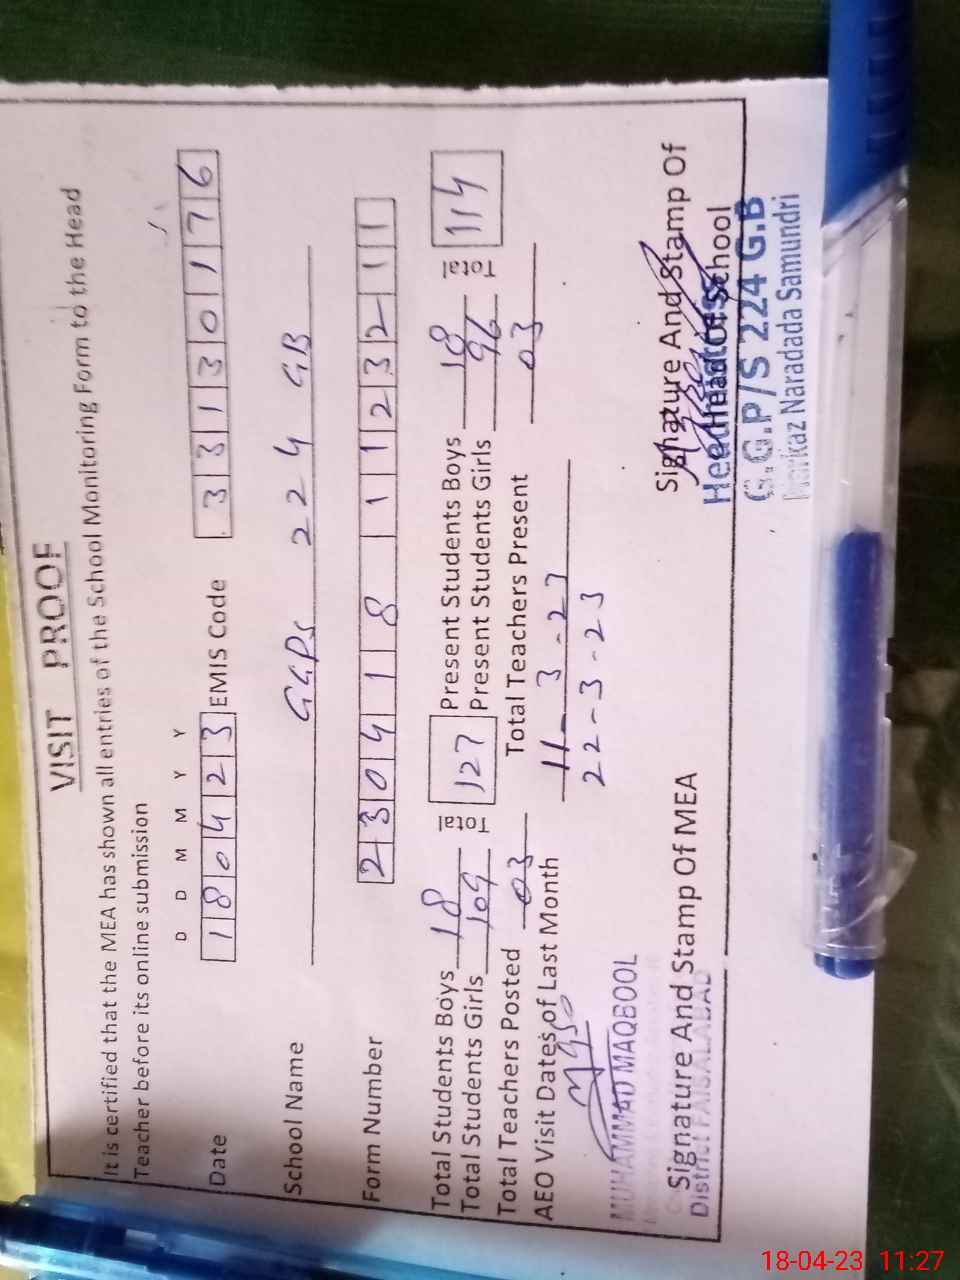 VISIT PROOF
It is certified that the MEA has shown all entries of the School Monitoring Form to the Head
Teacher before its online submission
D D M M Y Y
Date 180423 EMIS Code 33130176
School Name GGPS 224 GB
Form Number 230418 1123211
Total Students Boys 18 Total 127 Present Students Boys 18 Total 114
Total Students Girls 109 Present Students Girls 96
Total Teachers Posted 03 Total Teachers Present 03
AEO Visit Dates of Last Month 11-3-23
22-3-23
MUHAMMAD MAQBOOL
Signature And Stamp Of MEA
District FAISALABAD
Signature And Stamp Of
Head of School
Headmistress
G.G.P/S 224 G.B
Markaz Naradada Samundri
18-04-23 11:27